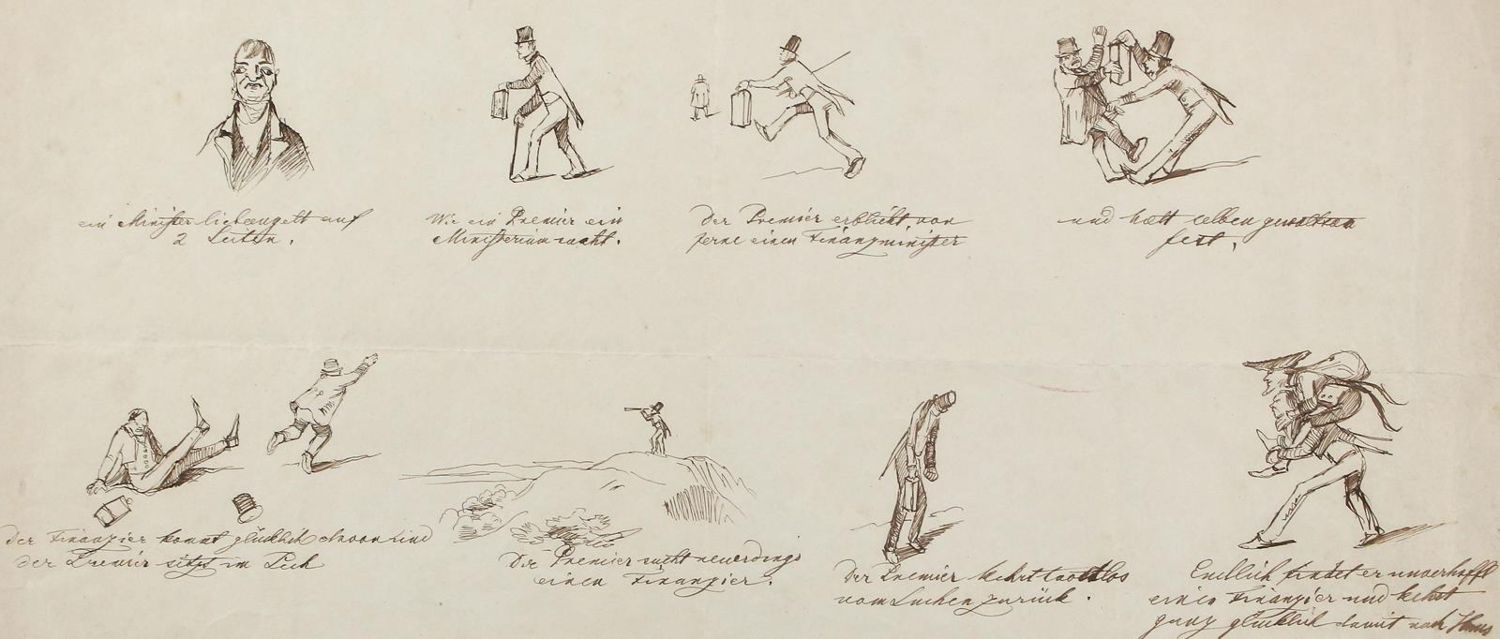 ein Minister liebäugelt auf
2 Seiten.
Wie ein Premier ein
Ministerium sucht.
Der Premier erblickt von
ferne einen Finanzminister
und hält selben gewaltsam
fest.
Der Finanzier kommt glücklich davon und
der Premier sitzt im Pech
Der Premier sucht neuerdings
einen Finanzier.
Der Premier kehrt trostlos
vom Suchen zurück.
Endlich findet er unverhofft
einen Finanzier und kehrt
ganz glücklich damit nach Haus